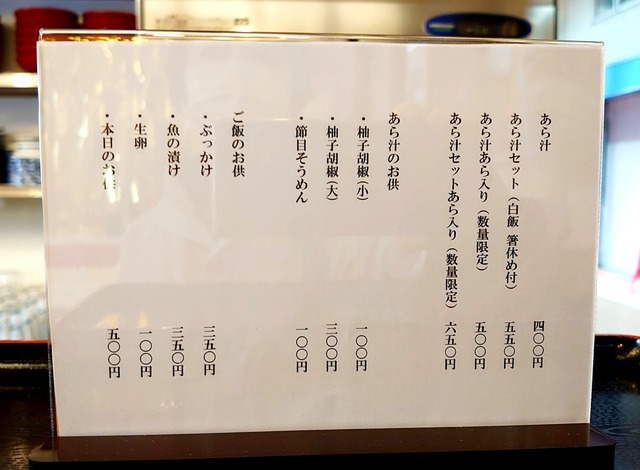 あら汁 四〇〇円
あら汁セット（白飯 箸休め付） 五五〇円
あら汁あら入り（数量限定） 五〇〇円
あら汁セットあら入り（数量限定） 六五〇円
あら汁のお供
・柚子胡椒（小） 一〇〇円
・柚子胡椒（大） 三〇〇円
・節目そうめん 一〇〇円
ご飯のお供
・ぶっかけ 三五〇円
・魚の漬け 三五〇円
・生卵 一〇〇円
・本日のお供 五〇〇円